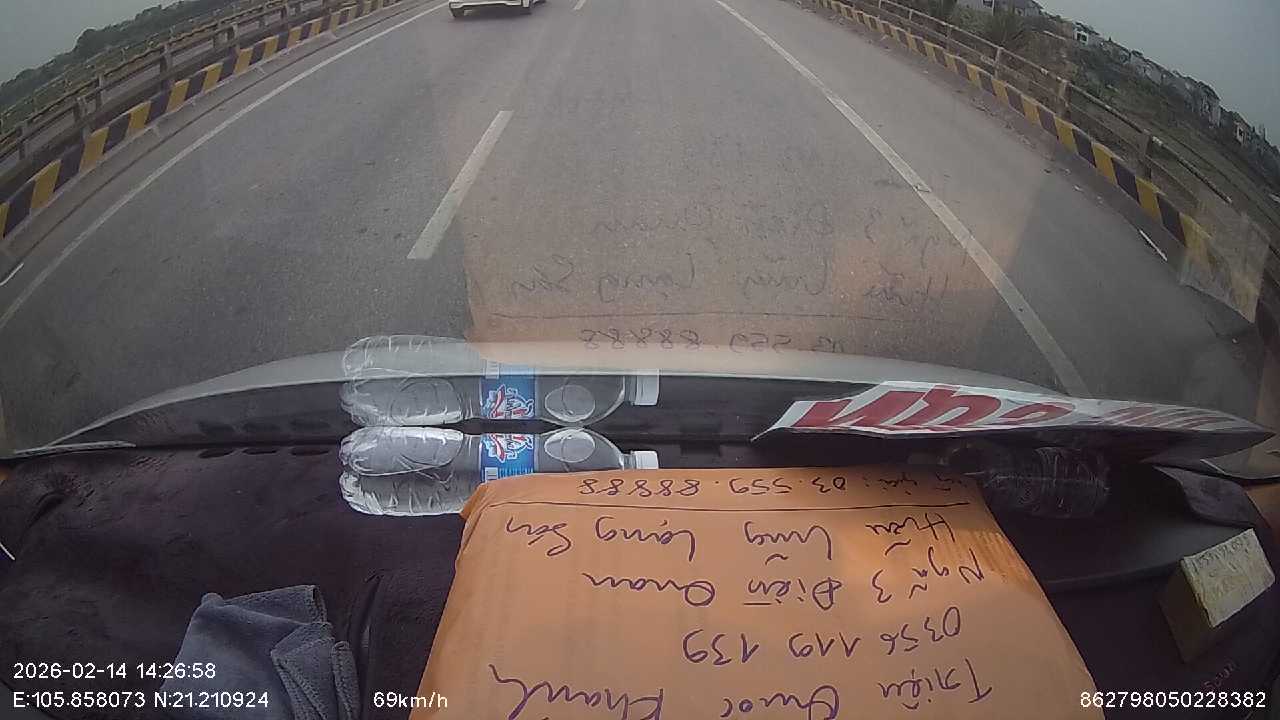 Triệu Quốc Khánh
0356 119 139
Ngã 3 Điễn Quan
Hữu Lũng Lạng Sơn
03.559.88888
2026-02-14 14:26:58
E:105.858073 N:21.210924 69km/h 862798050228382